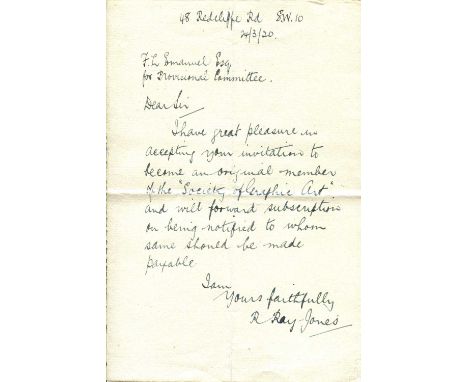 48 Redcliffe Rd S.W. 10
24/3/20.
F. L. Emanuel Esq,
for Provisional Committee.
Dear Sir
I have great pleasure in
accepting your invitation to
become an original member
of the "Society of Graphic Art"
and will forward subscription
on being notified to whom
same should be made
payable
I am
Yours faithfully
R Ray-Jones